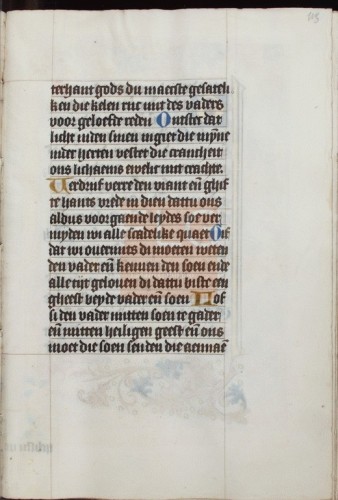 113
rechant gods du maecste gesateli
ken die kelen rue mit des vaders
voor geloefte reden Ontstec dat
licht inden sinen ingiet die mÿne
inder herten vestet die crancheit
ons lichaems ewelic mit crachte.
Verdruf verre den viant eñ ghif
te hants vrede in dien dattu ons
aldus voorgaende leydes soe ver
myden wi alle scadelike quaet Gif
dat wi overmits di moeten weten
den vader eñ kennen den soen ende
alle tijt geloven di dattu biste een
gheest beyde vader eñ soen Lof
si den vader mitten soen te gader
eñ mitten heiligen geest eñ ons
moet die soen senden die aennaẽ